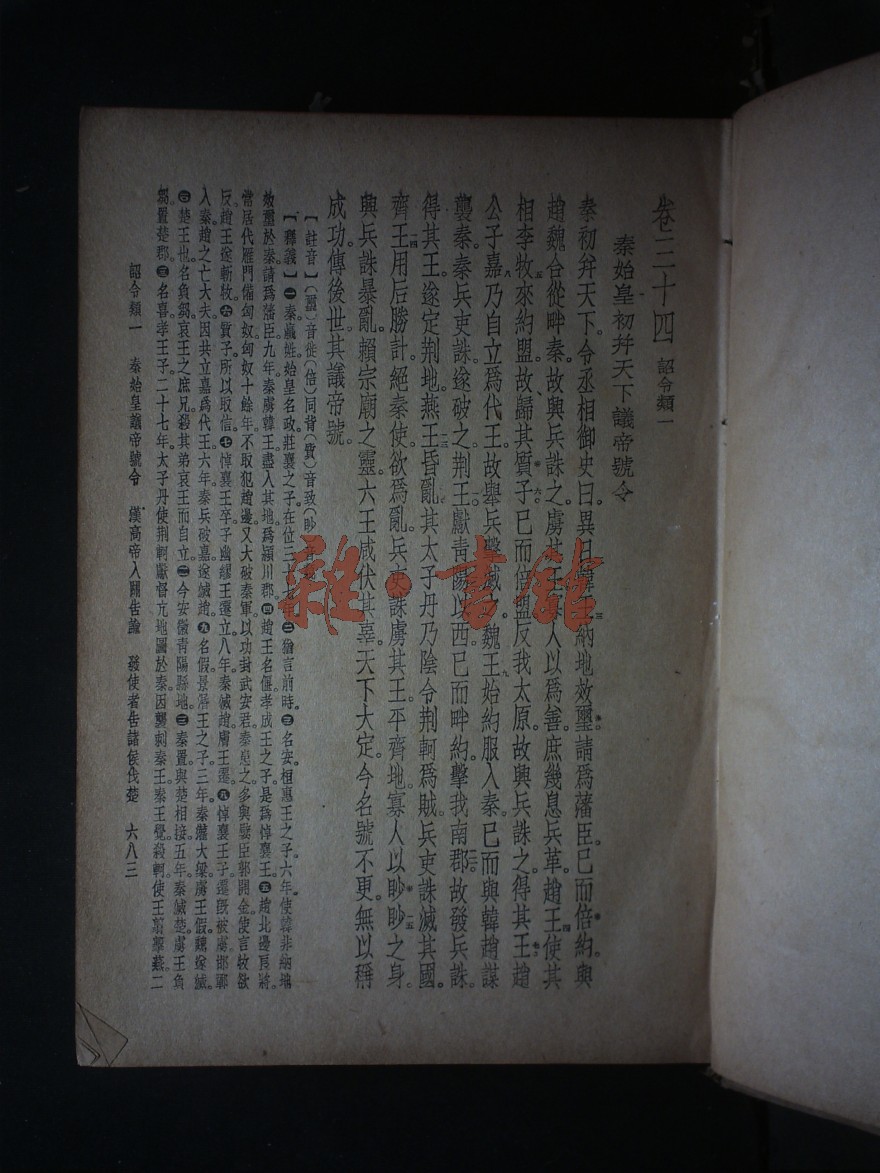 卷三十四 詔令類一
秦始皇初幷天下議帝號令
秦初幷天下。令丞相御史曰。異日韓王納地效璽。請爲藩臣。已而倍約。與
趙魏合從畔秦。故興兵誅之。虜其王。寡人以爲善。庶幾息兵革。趙王使其
相李牧來約盟。故歸其質子。已而倍盟。反我太原。故興兵誅之。得其王。趙
公子嘉乃自立爲代王。故舉兵擊滅之。魏王始約服入秦。已而與韓趙謀
襲秦。秦兵吏誅。遂破之。荆王獻青陽以西。已而畔約。擊我南郡。故發兵誅
得其王。遂定荆地。燕王昏亂。其太子丹乃陰令荆軻爲賊。兵吏誅滅其國。
齊王用后勝計。絕秦使。欲爲亂。兵吏誅虜其王。平齊地。寡人以眇眇之身。
興兵誅暴亂。賴宗廟之靈。六王咸伏其辜。天下大定。今名號不更。無以稱
成功傳後世。其議帝號。
【註音】（璽）音徙（倍）同背（質）音致（眇）音
【釋義】㊀秦嬴姓。始皇名政。莊襄之子。在位三十七年。㊁猶言前時。㊂名安。桓惠王之子。六年。使韓非納地
效璽於秦。請爲藩臣。九年。秦虜韓王。盡入其地。爲潁川郡。㊃趙王名偃。孝成王之子。是爲悼襄王。㊄趙北邊良將。
常居代雁門備匈奴。匈奴十餘年不取犯趙邊。又大破秦軍。以功封武安君。秦患之。多與嬖臣郭開金。使言牧欲
反。趙王遂斬牧。㊅質子所以取信。㊆悼襄王卒。子幽繆王遷立。八年。秦滅趙。虜王遷。㊇悼襄王子。遷旣被虜。邯鄲
入秦。趙之亡大夫。因共立嘉爲代王。六年。秦兵破嘉。遂滅趙。㊈名假。景湣王之子。三年。秦灌大梁。虜王假。魏遂滅。
㊉楚王也。名負芻。哀王之庶兄。殺其弟哀王而自立。㊁今安徽青陽縣地。㊂秦置。與楚相接。五年。秦滅楚。虜王負
芻。置楚郡。㊂名喜。孝王子。二十七年。太子丹使荆軻獻督亢地圖於秦。因襲刺秦王。秦王覺。殺軻。使王翦擊燕。二
詔令類一 秦始皇議帝號令 漢高帝入關告諭 發使者告諸侯伐楚 六八三
雜·書館